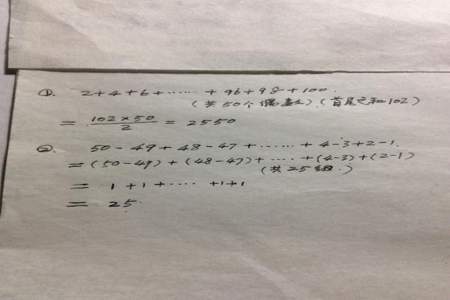 ①. 2+4+6+······+96+98+100
(共50个偶数)(首尾之和102)
= 102×50/2 = 2550
② 50-49+48-47+······+4-3+2-1.
=(50-49)+(48-47)+····+(4-3)+(2-1)
(共25组.)
= 1+1+·····+1+1
= 25.